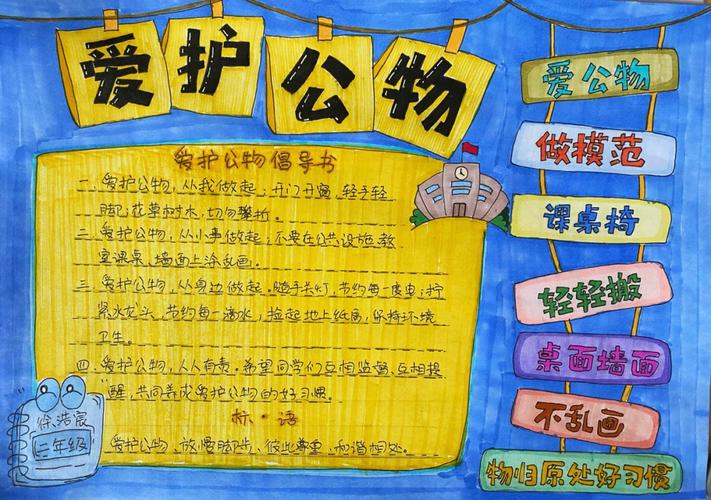 爱护公物
爱护公物倡导书
一. 爱护公物，从我做起；开门开窗，轻手轻
脚；花草树木，切勿攀折。
二. 爱护公物，从小事做起；不要在公共设施、教
室课桌、墙面上涂乱画。
三. 爱护公物，从身边做起。随手关灯，节约每一度电；拧
紧水龙头，节约每一滴水；捡起地上纸屑，保持环境
卫生。
四. 爱护公物，人人有责。希望同学们互相监督、互相提
醒，共同养成爱护公物的好习惯。
标·语
爱护公物、放慢脚步、彼此尊重、和谐相处。
爱公物
做模范
课桌椅
轻轻搬
桌面墙面
不乱画
物归原处好习惯
徐浩宸
二年级